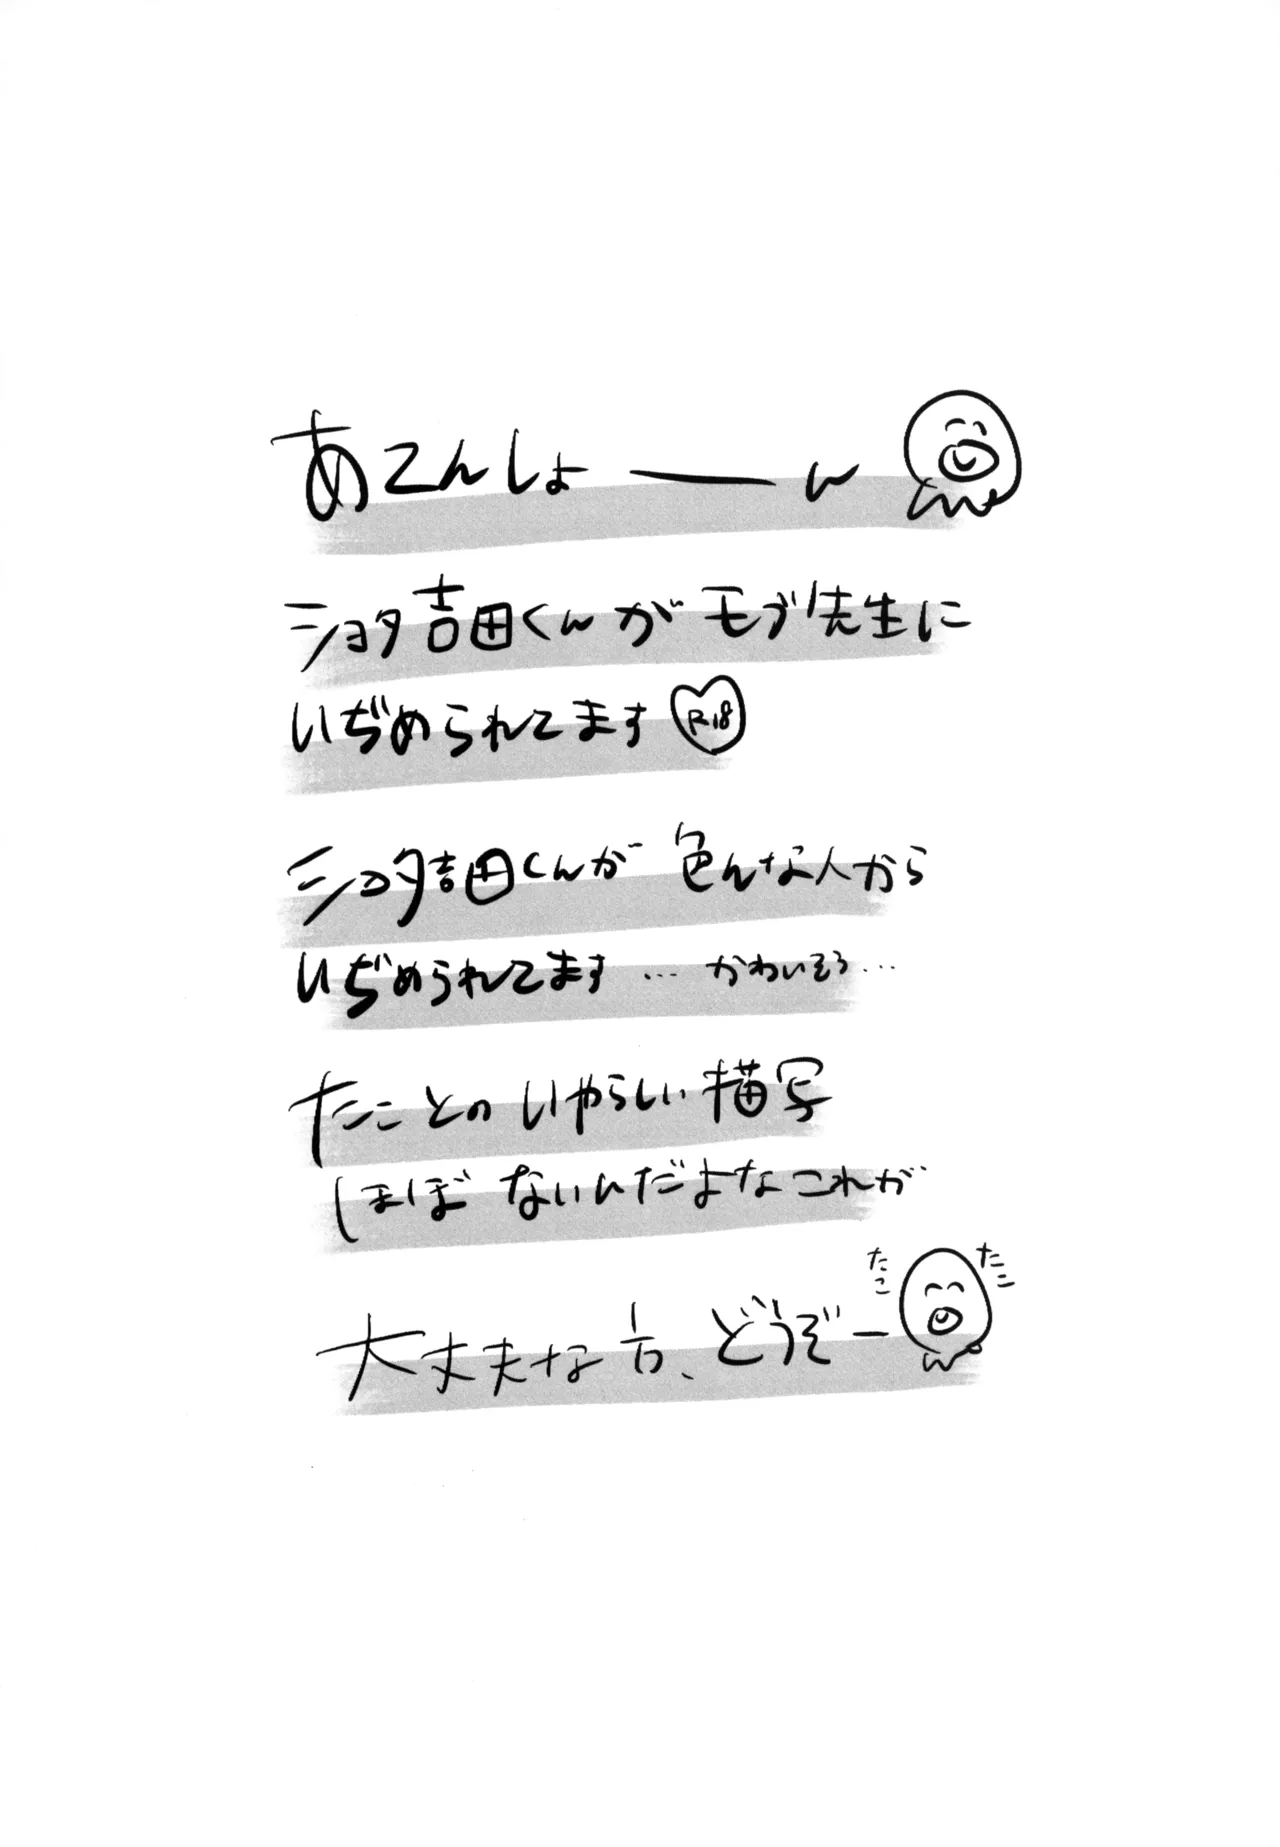 あてんしょーーん
ショタ吉田くんがモブ先生に
いぢめられてます R18
ショタ吉田くんが色んな人から
いぢめられてます…かわいそう…
たことのいやらしい描写
ほぼないんだよなこれが
たこ たこ
大丈夫な方、どうぞー